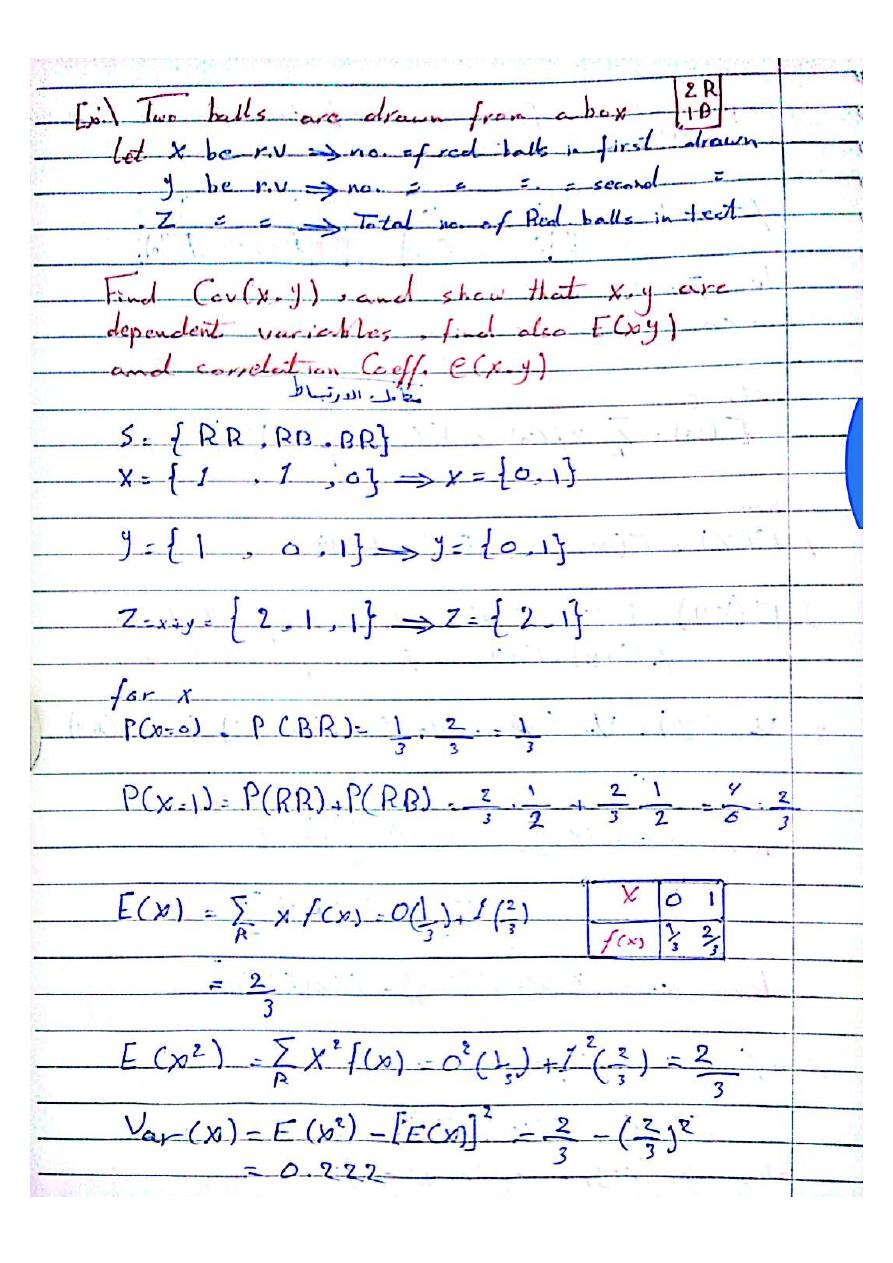 Ex:\ Two balls are drawn from a box
2 R
1 B
let x be r.v ⇒ no. of red balls in first drawn
y be r.v ⇒ no. = = = = second =
. Z = = ⇒ Total no. of Red balls in
Find Cov(x.y), and show that x.y are
dependent variables, find also E(xy)
and correlation Coeff. ρ(x.y)
معامل الارتباط
S = { RR , RB . BR}
X = { 1 . 1 , 0} ⇒ x = {0.1}
y = { 1 , 0 , 1} ⇒ y = {0,1}
Z = x+y = { 2 , 1 , 1} ⇒ Z = { 2 . 1}
for x
P(x=0) = P(BR) = 1/3 . 2/3 = 1/3
P(X=1) = P(RR) + P(RB) = 2/3 . 1/2 + 2/3 . 1/2 = 4/6 = 2/3
E(x) = Σ_R x f(x) = 0(1/3) + 1(2/3)
X 0 1
f(x) 1/3 2/3
= 2/3
E(x²) = Σ_R X² f(x) = 0²(1/3) + 1²(2/3) = 2/3
Var(x) = E(x²) - [E(x)]² = 2/3 - (2/3)²
= 0.222